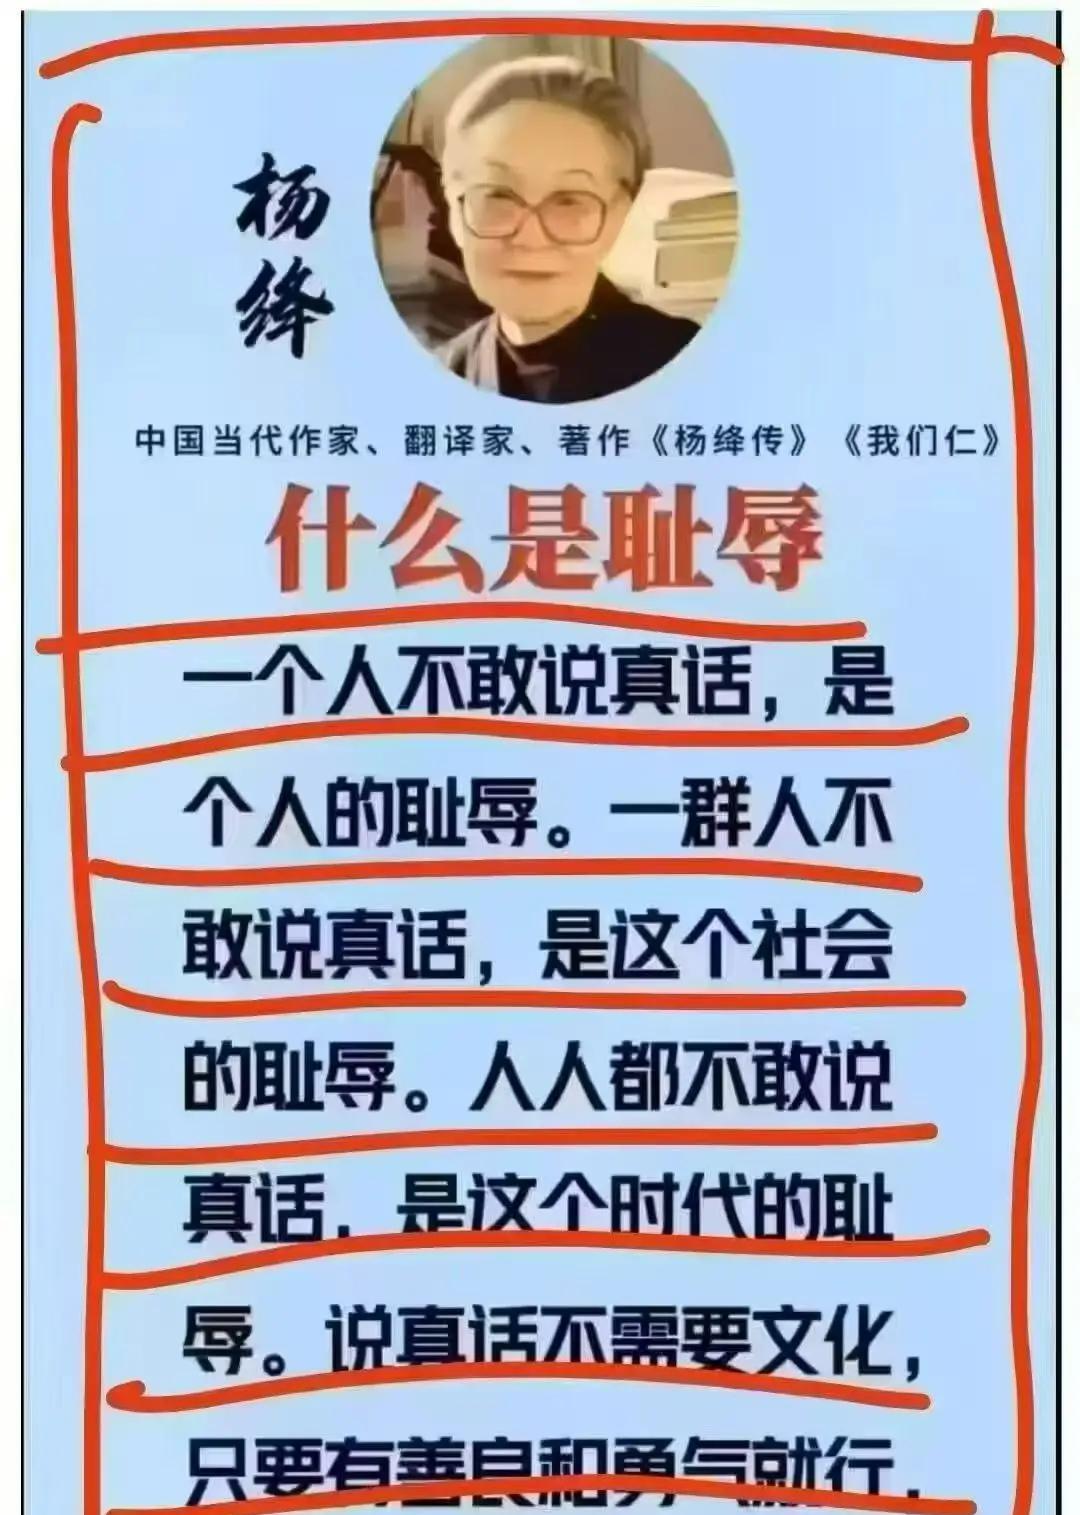 杨绛
中国当代作家、翻译家、著作《杨绛传》《我们仁》
什么是耻辱
一个人不敢说真话，是
个人的耻辱。一群人不
敢说真话，是这个社会
的耻辱。人人都不敢说
真话，是这个时代的耻
辱。说真话不需要文化，
只要有善良和勇气就行，